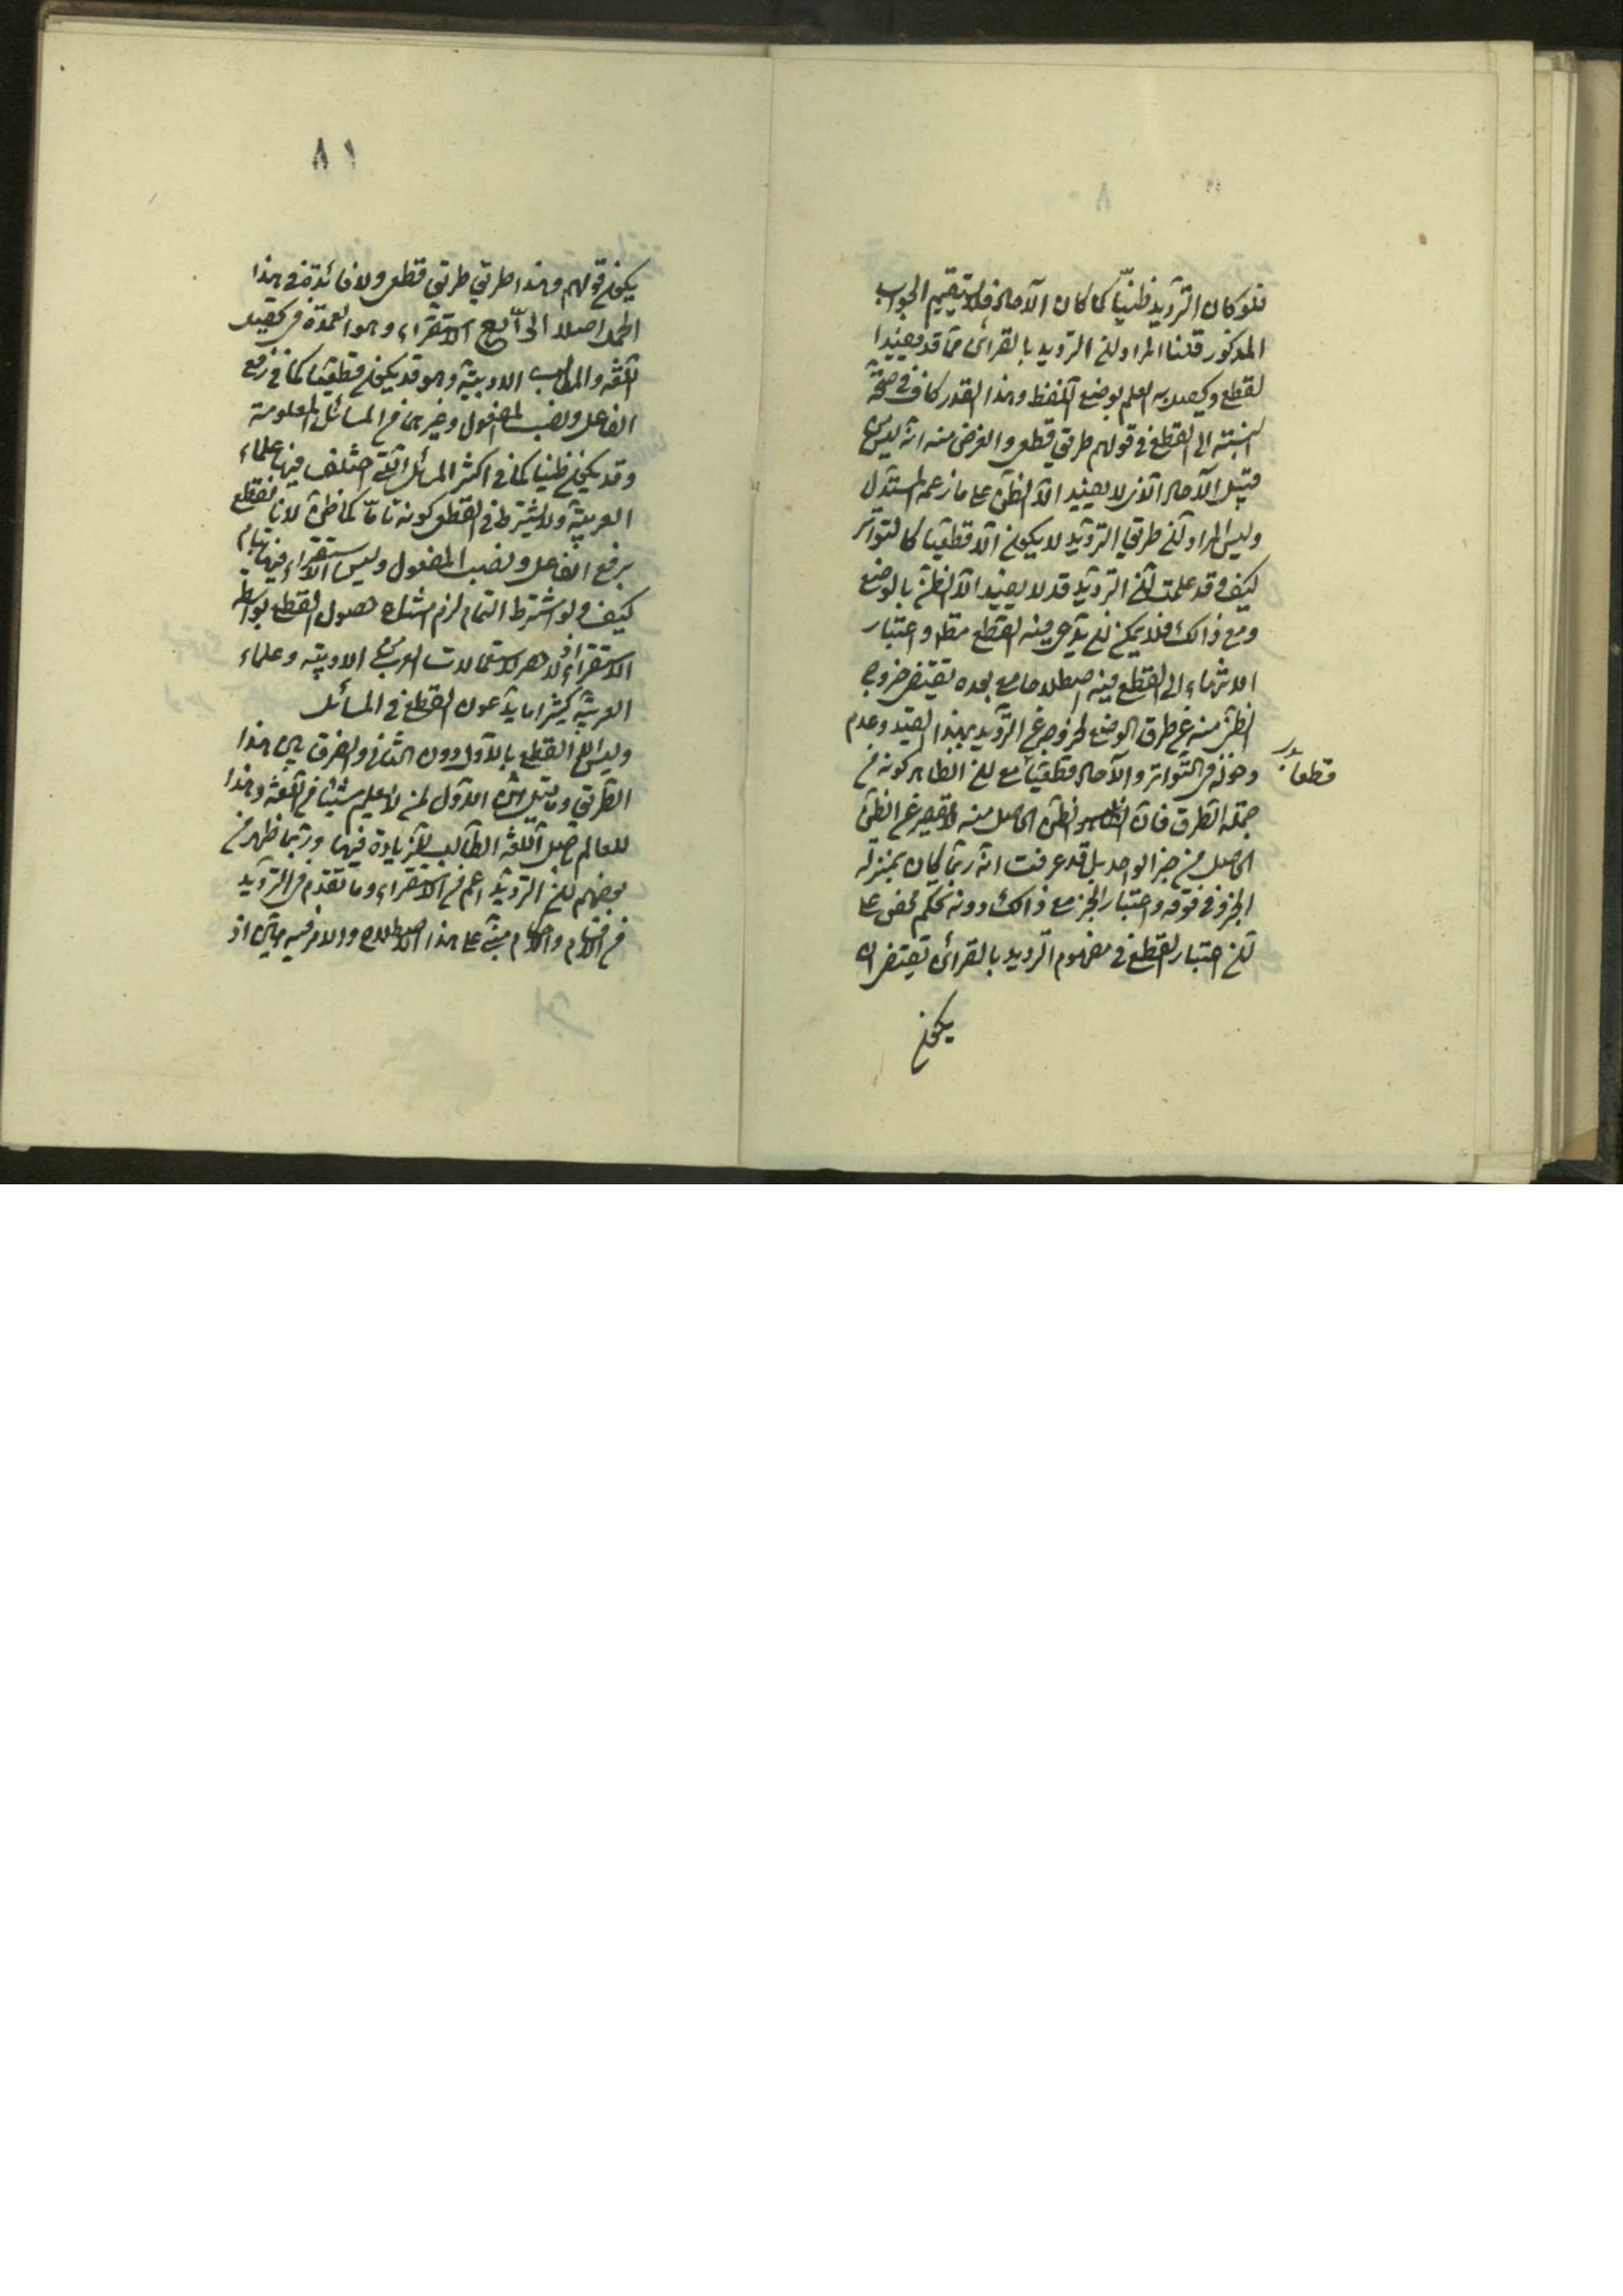 فلو كان الترديد ظنيّا كما كان الآحاد فلا يستقيم الجواب
المذكور قلنا المراد ان الترديد بالقرائن مما قد يفيد
القطع ويحصل به العلم بوضع اللفظ وهذا القدر كاف في صحّة
نسبته الى القطع في قولهم طريق قطعى والغرض منه انه ليس من
قبيل الآحاد الذى لا يفيد الّا الظن على ما زعمه المستدل
وليس المراد ان طريق الترديد لا يكون الّا قطعيّا كالتواتر
كيف وقد علمت ان الترديد قد لا يفيد الّا الظن بالوضع
ومع ذالك فلا يمكن ان يدّعى فيه القطع مطلقا واعتبار
الانتهاء الى القطع فيه اصطلاحا مع بعده يقتضى خروج
الظنى منه عن طرق الوضع لخروجه عن الترديد بهذا القيد وعدم
دخوله فى التواتر والآحاد قطعيا مع ان الظاهر كونه من
قطعا
جملة الطرق فان الظن الحاصل منه لا يقصر عن الظن
الحاصل من خبر الواحد بل قد عرفت انه ربما كان بمنزلة
الجزء فى قوته واعتبار الخبر مع ذالك دونه تحكم محض على
ان اعتبار القطع فى مفهوم الترديد بالقرائن يقتضى ان
يكون
٨١
يكون قولهم وهذا طريق طريق قطعى ولا فائدة فى هذا
الحمل اصلا الرابع الاستقراء وهو العمدة فى تحصيل
اللغة والمطالب الادبيّة وهو قد يكون قطعيّا كما فى رفع
الفاعل ونصب المفعول وغيرهما من المسائل المعلومة
وقد يكون ظنيا كما فى اكثر المسائل التى اختلف فيها علماء
العربيّة ولا يشترط فى القطعى كونه تامّا كما ظن لانا نقطع
برفع الفاعل ونصب المفعول وليس الاستقراء فيهما بتام
كيف ولو اشترط التمام لزم امتناع حصول القطع بواسطة
الاستقراء اذ لا حصر لاستعمالات العرب الادبيّة وعلماء
العربيّة كثيرا ما يدّعون القطع فى المسائل
وليس القطع بالاول دون الثانى والفرق بين هذا
الطريق وما قبله ان الاول لمن لا يعلم شيئا من اللغة وهذا
للعالم باصل اللغة الطالب للزيادة فيها وربما ظهر من
بعضهم ان الترديد اعم من الاستقراء وما تقدّم فى الترديد
من الاقسام والاحكام مبنى على هذا الاصطلاح والامر فيه هيّن اذ